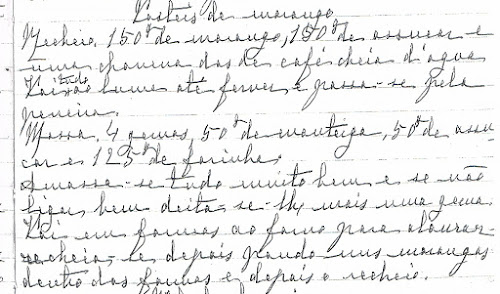 Pasteis de morango
Recheio, 150gr de morango, 150gr de assucar e
uma chavena das de café cheia d'agua
Vai tudo ao lume até ferver e passa-se pela
peneira.
Massa. 4 gemas, 50gr de manteiga, 50gr de assu
car e 125gr de farinha.
Amassa-se tudo muito bem e se não
ligar bem deita-se-lhe mais uma gema.
Vai em formas ao forno para alourar
recheia-se depois pondo uns morangos
dentro das formas e depois o recheio.